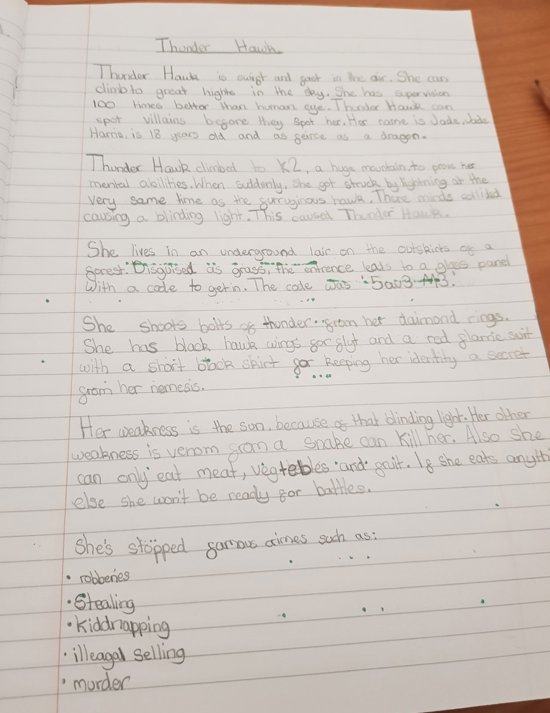 Thunder Hawk
Thunder Hawk is swift and fast in the air. She can
climb to great hights in the sky. She has supervision
100 times better than human eye. Thunder Hawk can
spot villains before they spot her. Her name is Jade. Jade
Harris is 18 years old and as feirce as a dragon.
Thunder Hawk climbed to K2, a huge mountain, to prove her
mental abilities. When suddenly, she got struck by lightning at the
very same time as the furruginous hawk. There minds collided
causing a blinding light. This caused Thunder Hawk.
She lives in an underground lair on the outskirts of a
forest. Disguised as grass, the entrence leads to a glass panel
with a code to get in. The code was
She shoots bolts of thunder from her daimond rings.
She has black hawk wings for flyt and a red suit
with a short black skirt for keeping her identity a secret
from her nemesis.
Her weakness is the sun, because of that blinding light. Her other
weakness is venom from a snake can kill her. Also she
can only eat meat, vegtebles and fruit. If she eats anythi
else she won't be ready for battles.
She's stopped famous crimes such as:
• robberies
• Stealing
• Kiddnapping
• illeagal selling
• murder